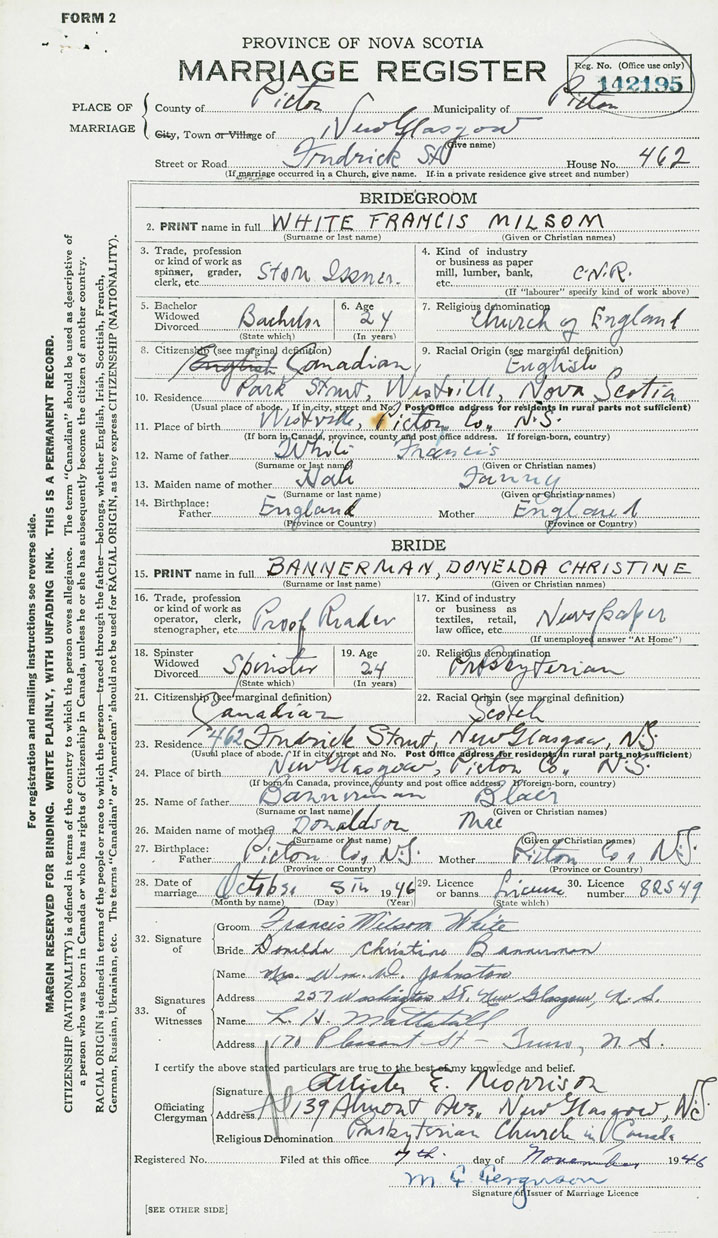 FORM 2
PROVINCE OF NOVA SCOTIA
MARRIAGE REGISTER
Reg. No. (Office use only)
142195
PLACE OF MARRIAGE
County of Picton Municipality of Picton
City, Town or Village of New Glasgow
(Give name)
Street or Road Frdrick St House No. 462
(If marriage occurred in a Church, give name. If in a private residence give street and number)
BRIDEGROOM
2. PRINT name in full WHITE FRANCIS MILSOM
(Surname or last name) (Given or Christian names)
3. Trade, profession or kind of work as spinner, grader, clerk, etc. Stores Issuer.
4. Kind of industry or business as paper mill, lumber, bank, etc. C.N.R.
(If "labourer" specify kind of work above)
5. Bachelor Widowed Divorced Bachelor
(State which)
6. Age 24
(In years)
7. Religious denomination Church of England
8. Citizenship (see marginal definition) English Canadian
9. Racial Origin (see marginal definition) English
10. Residence Park Street, Westville, Nova Scotia
(Usual place of abode. If in city, street and No. Post Office address for residents in rural parts not sufficient)
11. Place of birth Westville, Picton Co., N.S.
(If born in Canada, province, county and post office address. If foreign-born, country)
12. Name of father White Francis
(Surname or last name) (Given or Christian names)
13. Maiden name of mother Hale Fanny
(Surname or last name) (Given or Christian names)
14. Birthplace: Father England Mother England
(Province or Country) (Province or Country)
BRIDE
15. PRINT name in full BANNERMAN, DONELDA CHRISTINE
(Surname or last name) (Given or Christian names)
16. Trade, profession or kind of work as operator, clerk, stenographer, etc. Proof Reader
17. Kind of industry or business as textiles, retail, law office, etc. Newspaper
(If unemployed answer "At Home")
18. Spinster Widowed Divorced Spinster
(State which)
19. Age 24
(In years)
20. Religious denomination Presbyterian
21. Citizenship (see marginal definition) Canadian
22. Racial Origin (see marginal definition) Scotch
23. Residence 462 Frdrick Street, New Glasgow, N.S.
(Usual place of abode. If in city, street and No. Post Office address for residents in rural parts not sufficient)
24. Place of birth New Glasgow, Picton Co., N.S.
(If born in Canada, province, county and post office address. If foreign-born, country)
25. Name of father Bannerman Blair
(Surname or last name) (Given or Christian names)
26. Maiden name of mother Donaldson Mae
(Surname or last name) (Given or Christian names)
27. Birthplace: Father Picton Co., N.S. Mother Picton Co., N.S.
(Province or Country) (Province or Country)
28. Date of marriage October 5th 1946
(Month by name) (Day) (Year)
29. Licence or banns License
(State which)
30. Licence number 82549
32. Signature of
Groom Francis Milsom White
Bride Donelda Christine Bannerman
33. Signatures of Witnesses
Name Mrs. Wm. D. Johnston
Address 257 Washington St. New Glasgow, N.S.
Name L. H. Mattatall
Address 170 Pleasant St - Truro, N.S.
I certify the above stated particulars are true to the best of my knowledge and belief.
Officiating Clergyman
Signature E. Morrison
Address 139 Almont Ave., New Glasgow, N.S.
Religious Denomination Presbyterian Church in Canada
Registered No. Filed at this office 7th day of November 1946
M G Ferguson
Signature of Issuer of Marriage Licence
[SEE OTHER SIDE]
For registration and mailing instructions see reverse side.
MARGIN RESERVED FOR BINDING. WRITE PLAINLY, WITH UNFADING INK. THIS IS A PERMANENT RECORD.
CITIZENSHIP (NATIONALITY) is defined in terms of the country to which the person owes allegiance. The term "Canadian" should be used as descriptive of
a person who was born in Canada or who has rights of Citizenship in Canada, unless he or she has subsequently become the citizen of another country.
RACIAL ORIGIN is defined in terms of the people or race to which the person—traced through the father—belongs, whether English, Irish, Scottish, French,
German, Russian, Ukrainian, etc. The terms "Canadian" or "American" should not be used for RACIAL ORIGIN, as they express CITIZENSHIP (NATIONALITY).